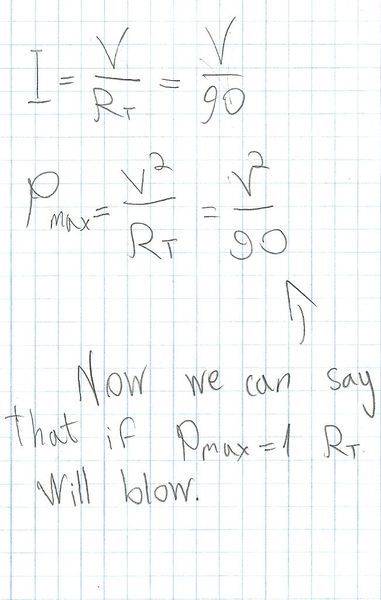 I = V/R_T = V/90
P_max = V²/R_T = V²/90
Now we can say
that if P_max=1 R_T
Will blow.